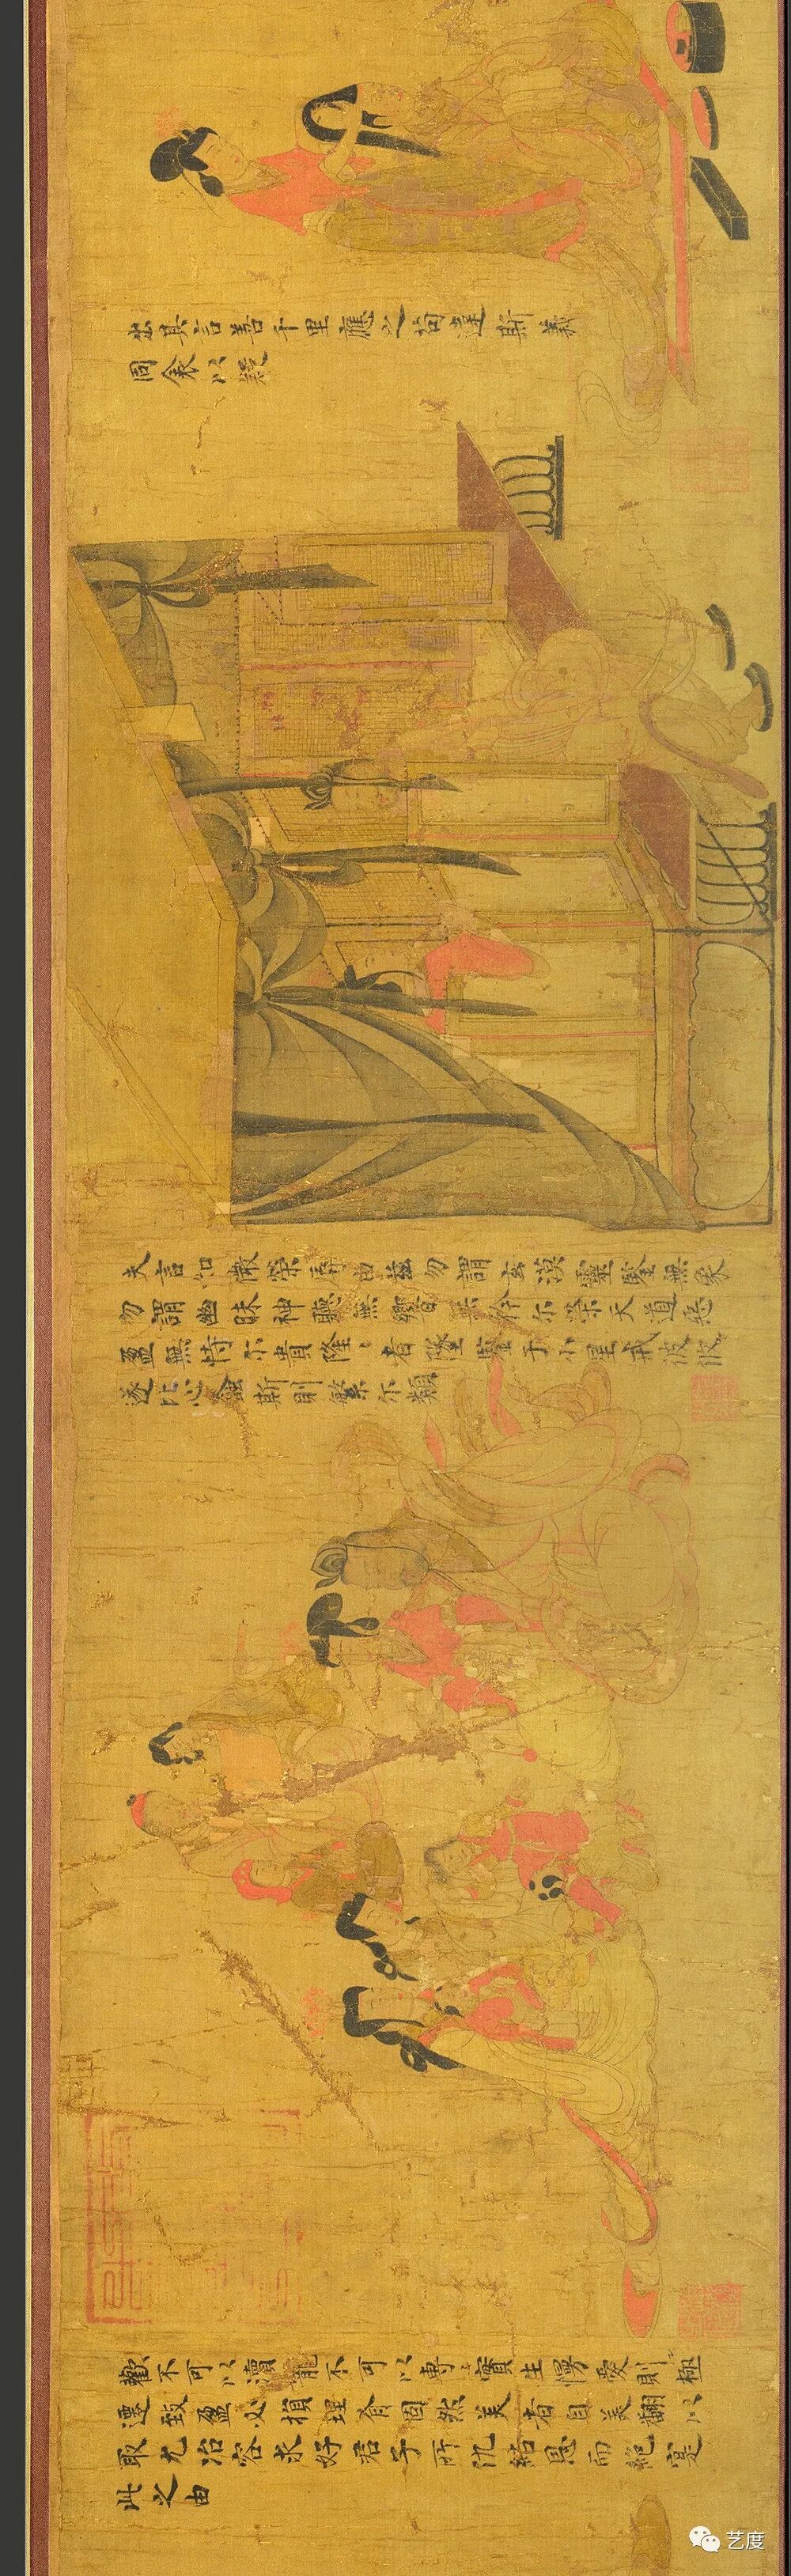 出其言善千里應之苟違斯義
同衾以疑
夫言如微榮辱由茲勿謂玄漠靈鑒無象
勿謂幽昧神聽無響無矜尓榮天道惡
盈無恃尓貴隆〻者墜鑒于小星戒彼攸
遂比心螽斯則繁尓類
歡不可以瀆寵不可以專〻實生慢愛則極
遷致盈必損理有固然美者自美翩以
取尤冶容求好君子所仇結恩而絕寔
此之由
艺度